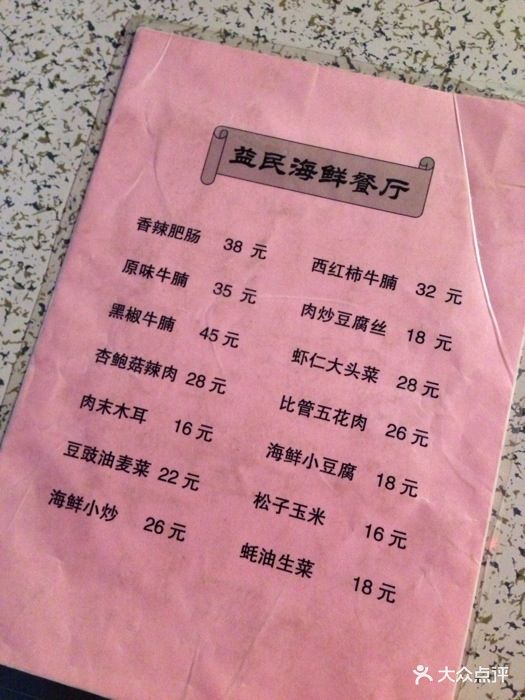 益民海鲜餐厅
香辣肥肠 38 元
原味牛腩 35 元
黑椒牛腩 45 元
杏鲍菇辣肉 28 元
肉末木耳 16 元
豆豉油麦菜 22 元
海鲜小炒 26 元
西红柿牛腩 32 元
肉炒豆腐丝 18 元
虾仁大头菜 28 元
比管五花肉 26 元
海鲜小豆腐 18 元
松子玉米 16 元
蚝油生菜 18 元
大众点评